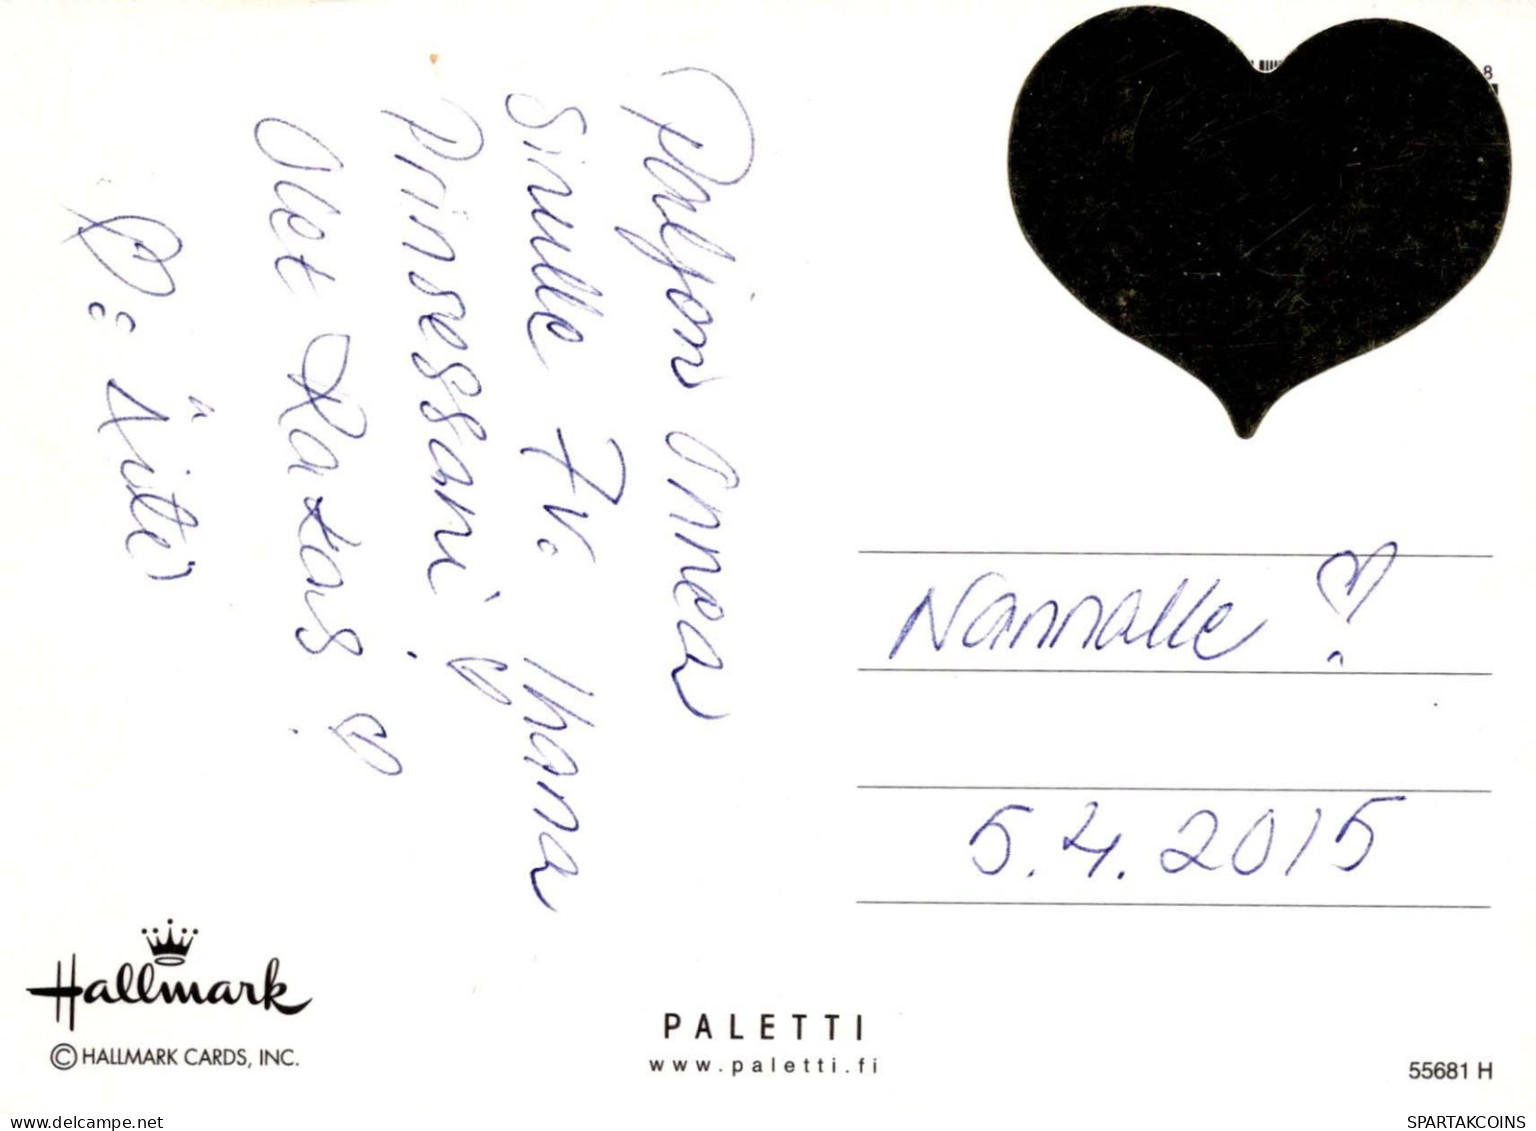 Paljon Onnea
Sinulle 7v. Ihana
Prinsessani!
Olet Rakas!
: Äitee
Nannalle!
5.4.2015
8
Hallmark
© HALLMARK CARDS, INC.
PALETTI
www.paletti.fi
55681 H
delcampe.net
SPARTAKCOINS